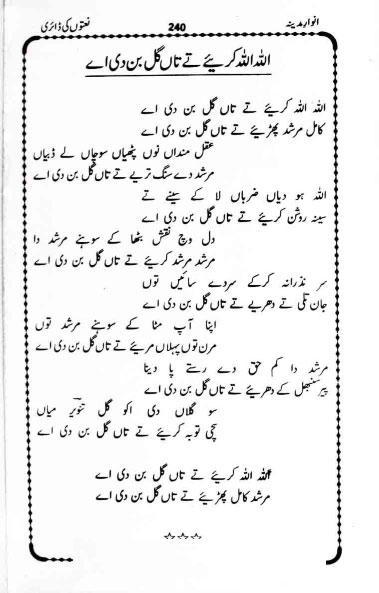 انوار مدینہ
240
نعتوں کی ڈائری
اللہ اللہ کریئے تے تاں گل بن دی اے
اللہ اللہ کریئے تے تاں گل بن دی اے
کامل مرشد پھڑیئے تے تاں گل بن دی اے
عقل منداں نوں پٹھیاں سوچاں لے ڈبیاں
مرشد دے سنگ تریے تے تاں گل بن دی اے
اللہ ہو دیاں ضرباں لا کے سینے تے
سینہ روشن کریئے تے تاں گل بن دی اے
دل وچ نقش بٹھا کے سوہنے مرشد دا
مرشد مرشد کریئے تے تاں گل بن دی اے
سر نذرانہ کرکے سردے سائیں توں
جان تلی تے دھریے تے تاں گل بن دی اے
اپنا آپ مٹا کے سوہنے مرشد توں
مرن توں پہلاں مریئے تاں گل بن دی اے
مرشد دا کم حق دے رستے پا دینا
پیر سنبھل کے دھریئے تے تاں گل بن دی اے
سو گلاں دی اکو گل تنویر میاں
سچی توبہ کریئے تے تاں گل بن دی اے
اللہ اللہ کریئے تے تاں گل بن دی اے
مرشد کامل پھڑیئے تے تاں گل بن دی اے